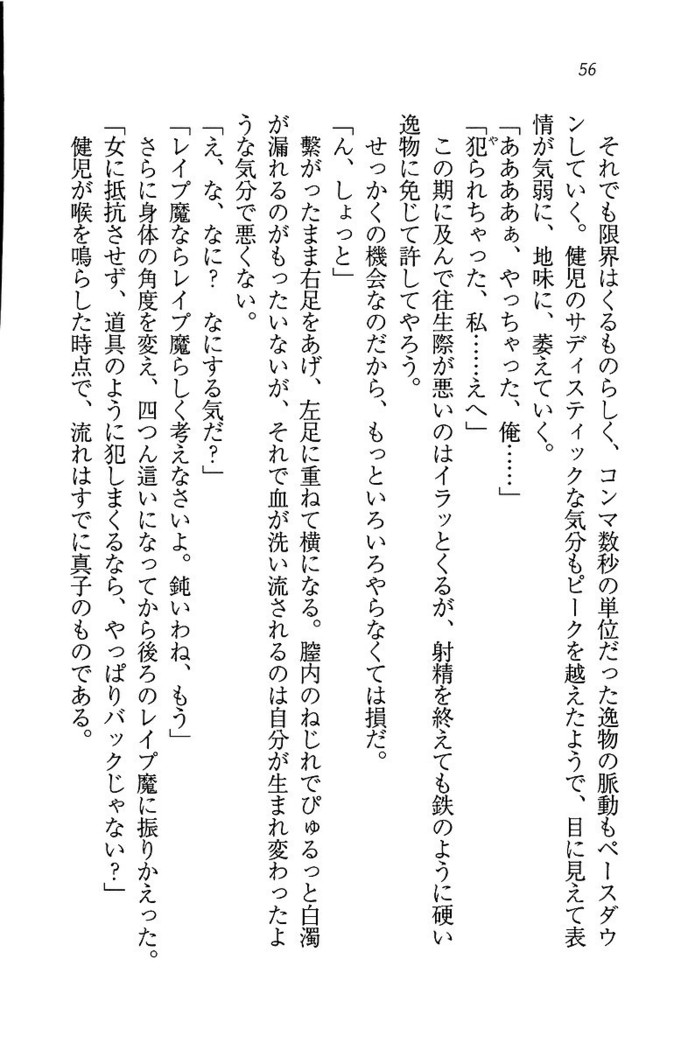 56
それでも限界はくるものらしく、コンマ数秒の単位だった逸物の脈動もペースダウ
ンしていく。健児のサディスティックな気分もピークを越えたようで、目に見えて表
情が気弱に、地味に、萎えていく。
「ああああぁ、やっちゃった、俺……」
「犯られちゃった、私……えへ」
この期に及んで往生際が悪いのはイラッとくるが、射精を終えても鉄のように硬い
逸物に免じて許してやろう。
せっかくの機会なのだから、もっといろいろやらなくては損だ。
「ん、しょっと」
繋がったまま右足をあげ、左足に重ねて横になる。膣内のねじれでぴゅるっと白濁
が漏れるのがもったいないが、それで血が洗い流されるのは自分が生まれ変わったよ
うな気分で悪くない。
「え、な、なに？　なにする気だ？」
「レイプ魔ならレイプ魔らしく考えなさいよ。鈍いわね、もう」
さらに身体の角度を変え、四つん這いになってから後ろのレイプ魔に振りかえった。
「女に抵抗させず、道具のように犯しまくるなら、やっぱりバックじゃない？」
健児が喉を鳴らした時点で、流れはすでに真子のものである。